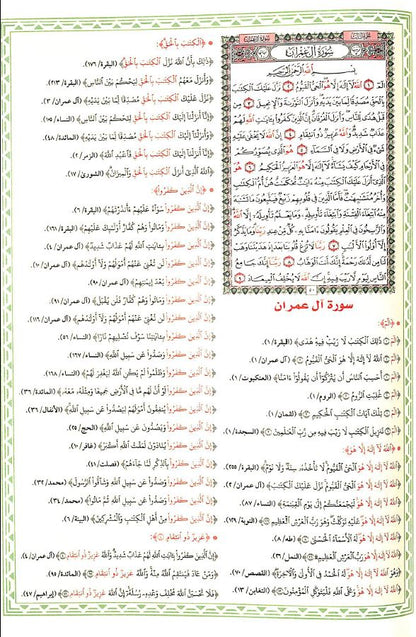 سُورَةُ آلِ عِمْرَانَ
بسم الله الرحمن الرحيم
الٓمٓ ١ الله لا إله إلا هو الحى القيوم ٢ نزل عليك الكتب
بالحق مصدقا لما بين يديه وأنزل التورىة والإنجيل ٣ من
قبل هدى للناس وأنزل الفرقان إن الذين كفروا بـايت الله لهم
عذاب شديد والله عزيز ذو انتقام ٤ إن الله لا يخفى عليه
شىء فى الأرض ولا فى السماء ٥ هو الذى يصوركم
فى الأرحام كيف يشاء لا إله إلا هو العزيز الحكيم ٦ هو
الذى أنزل عليك الكتب منه ءايت محكمت هن أم الكتب
وأخر متشبهت فأما الذين فى قلوبهم زيغ فيتبعون ما تشبه
منه ابتغاء الفتنة وابتغاء تأويله وما يعلم تأويله إلا الله
والرسخون فى العلم يقولون ءامنا به كل من عند ربنا وما يذكر
إلا أولوا الألبب ٧ ربنا لا تزغ قلوبنا بعد إذ هديتنا وهب
لنا من لدنك رحمة إنك أنت الوهاب ٨ ربنا إنك جامع
الناس ليوم لا ريب فيه إن الله لا يخلف الميعاد ٩
٥٠
سورة آل عمران
* ﴿الٓمٓ﴾:
﴿الٓمٓ ١ ذلك الكتب لا ريب فيه﴾ (البقرة/١).
﴿الٓمٓ ١ الله لا إله إلا هو الحى القيوم﴾ (آل عمران/١).
﴿الٓمٓ ١ أحسب الناس أن يتركوا أن يقولوا ءامنا﴾ (العنكبوت/١).
﴿الٓمٓ ١ غلبت الروم﴾ (الروم/١).
﴿الٓمٓ ١ تلك ءايت الكتب الحكيم﴾ (لقمان/١).
﴿الٓمٓ ١ تنزيل الكتب لا ريب فيه من رب العلمين﴾ (السجدة/١).
* ﴿الله لا إله إلا هو﴾:
﴿الله لا إله إلا هو الحى القيوم لا تأخذه سنة ولا نوم﴾ (البقرة/٢٥٥).
﴿الله لا إله إلا هو الحى القيوم نزل عليك الكتب﴾ (آل عمران/٢).
﴿الله لا إله إلا هو ليجمعنكم إلى يوم القيمة﴾ (النساء/٨٧).
﴿لا إله إلا هو عليه توكلت وهو رب العرش العظيم﴾ (التوبة/١٢٩).
﴿الله لا إله إلا هو له الأسماء الحسنى﴾ (طه/٨).
﴿الله لا إله إلا هو رب العرش العظيم﴾ (النمل/٢٦).
﴿وهو الله لا إله إلا هو له الحمد فى الأولى والأخرة﴾ (القصص/٧٠).
﴿الله لا إله إلا هو وعلى الله فليتوكل المؤمنون﴾ (التغابن/١٣).
* ﴿الكتب بالحق﴾:
﴿ذلك بأن الله نزل الكتب بالحق﴾ (البقرة/١٧٦).
﴿وأنزل معهم الكتب بالحق ليحكم بين الناس﴾ (البقرة/٢١٣).
﴿نزل عليك الكتب بالحق مصدقا لما بين يديه﴾ (آل عمران/٣).
﴿إنا أنزلنا إليك الكتب بالحق لتحكم بين الناس﴾ (النساء/١٠٥).
﴿وأنزلنا إليك الكتب بالحق مصدقا لما بين يديه﴾ (المائدة/٤٨).
﴿إنا أنزلنا إليك الكتب بالحق فاعبد الله﴾ (الزمر/٢).
﴿الله الذى أنزل الكتب بالحق والميزان﴾ (الشورى/١٧).
* ﴿إن الذين كفروا﴾:
﴿إن الذين كفروا سواء عليهم ءأنذرتهم﴾ (البقرة/٦).
﴿إن الذين كفروا وماتوا وهم كفار أولئك عليهم﴾ (البقرة/١٦١).
﴿إن الذين كفروا بـايت الله لهم عذاب شديد﴾ (آل عمران/٤).
﴿إن الذين كفروا لن تغنى عنهم أمولهم ولا أولدهم﴾ (آل عمران/١٠).
﴿إن الذين كفروا بعد إيمنهم﴾ (آل عمران/٩٠).
﴿إن الذين كفروا وماتوا وهم كفار فلن يقبل﴾ (آل عمران/٩١).
﴿إن الذين كفروا لن تغنى عنهم أمولهم ولا أولدهم﴾ (آل عمران/١١٦).
﴿إن الذين كفروا بـايتنا سوف نصليهم نارا﴾ (النساء/٥٦).
﴿إن الذين كفروا وصدوا عن سبيل الله﴾ (النساء/١٦٧).
﴿إن الذين كفروا وظلموا لم يكن الله ليغفر لهم﴾ (النساء/١٦٨).
﴿إن الذين كفروا لو أن لهم ما فى الأرض جميعا ومثله، معه،﴾ (المائدة/٣٦).
﴿إن الذين كفروا ينفقون أمولهم ليصدوا عن سبيل الله﴾ (الأنفال/٣٦).
﴿إن الذين كفروا ويصدون عن سبيل الله﴾ (الحج/٢٥).
﴿إن الذين كفروا ينادون لمقت الله أكبر﴾ (غافر/١٠).
﴿إن الذين كفروا بالذكر لما جاءهم﴾ (فصلت/٤١).
﴿إن الذين كفروا وصدوا عن سبيل الله وشاقوا الرسول﴾ (محمد/٣٢).
﴿إن الذين كفروا وصدوا عن سبيل الله ثم ماتوا﴾ (محمد/٣٤).
﴿إن الذين كفروا من أهل الكتب والمشركين﴾ (البينة/٦).
* ﴿عزيز ذو انتقام﴾:
﴿إن الذين كفروا بـايت الله لهم عذاب شديد والله عزيز ذو انتقام﴾ (آل عمران/٤).
﴿ومن عاد فينتقم الله منه والله عزيز ذو انتقام﴾ (المائدة/٩٥).
﴿فلا تحسبن الله مخلف وعده، رسله، إن الله عزيز ذو انتقام﴾ (إبراهيم/٤٧).